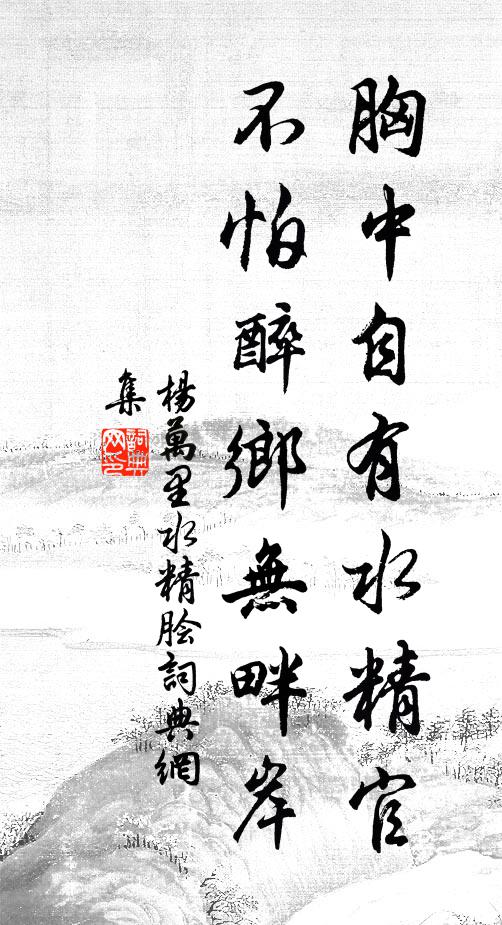 胸中自有水精官
不怕醉鄉無畔岸
楊萬里水精膾詞典網
集
詞典
网印